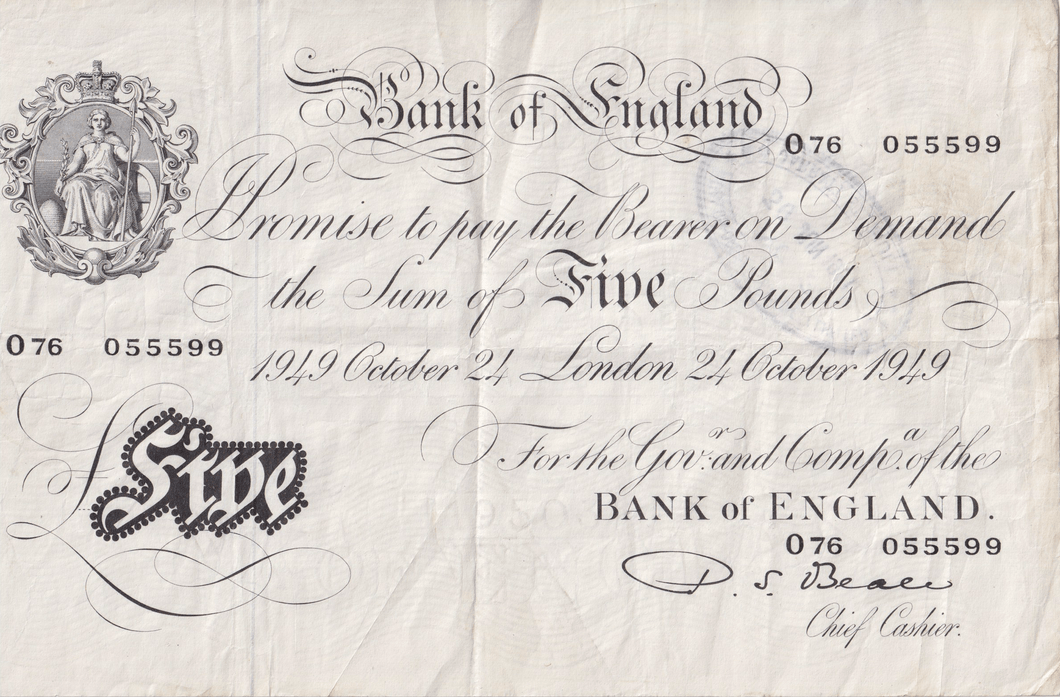 Bank of England
O76 055599
I Promise to pay the Bearer on Demand
the Sum of Five Pounds
O76 055599
1949 October 24 London 24 October 1949
£Five
For the Gov:r and Comp:a of the
BANK of ENGLAND.
O76 055599
P. S. Beale
Chief Cashier.